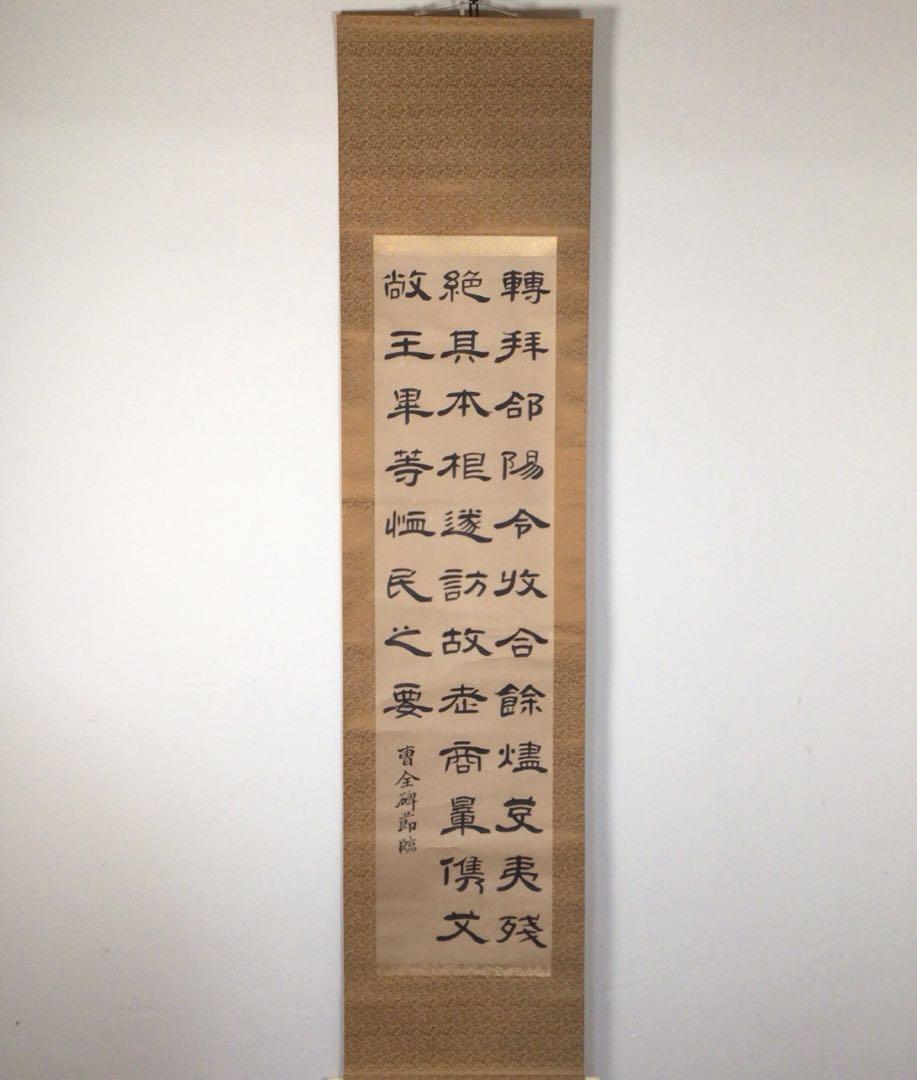 轉拜郃陽令收合餘燼芟夷殘
絶其本根遂訪故老商量儁艾
敞王畢等恤民之要
曹全碑節臨